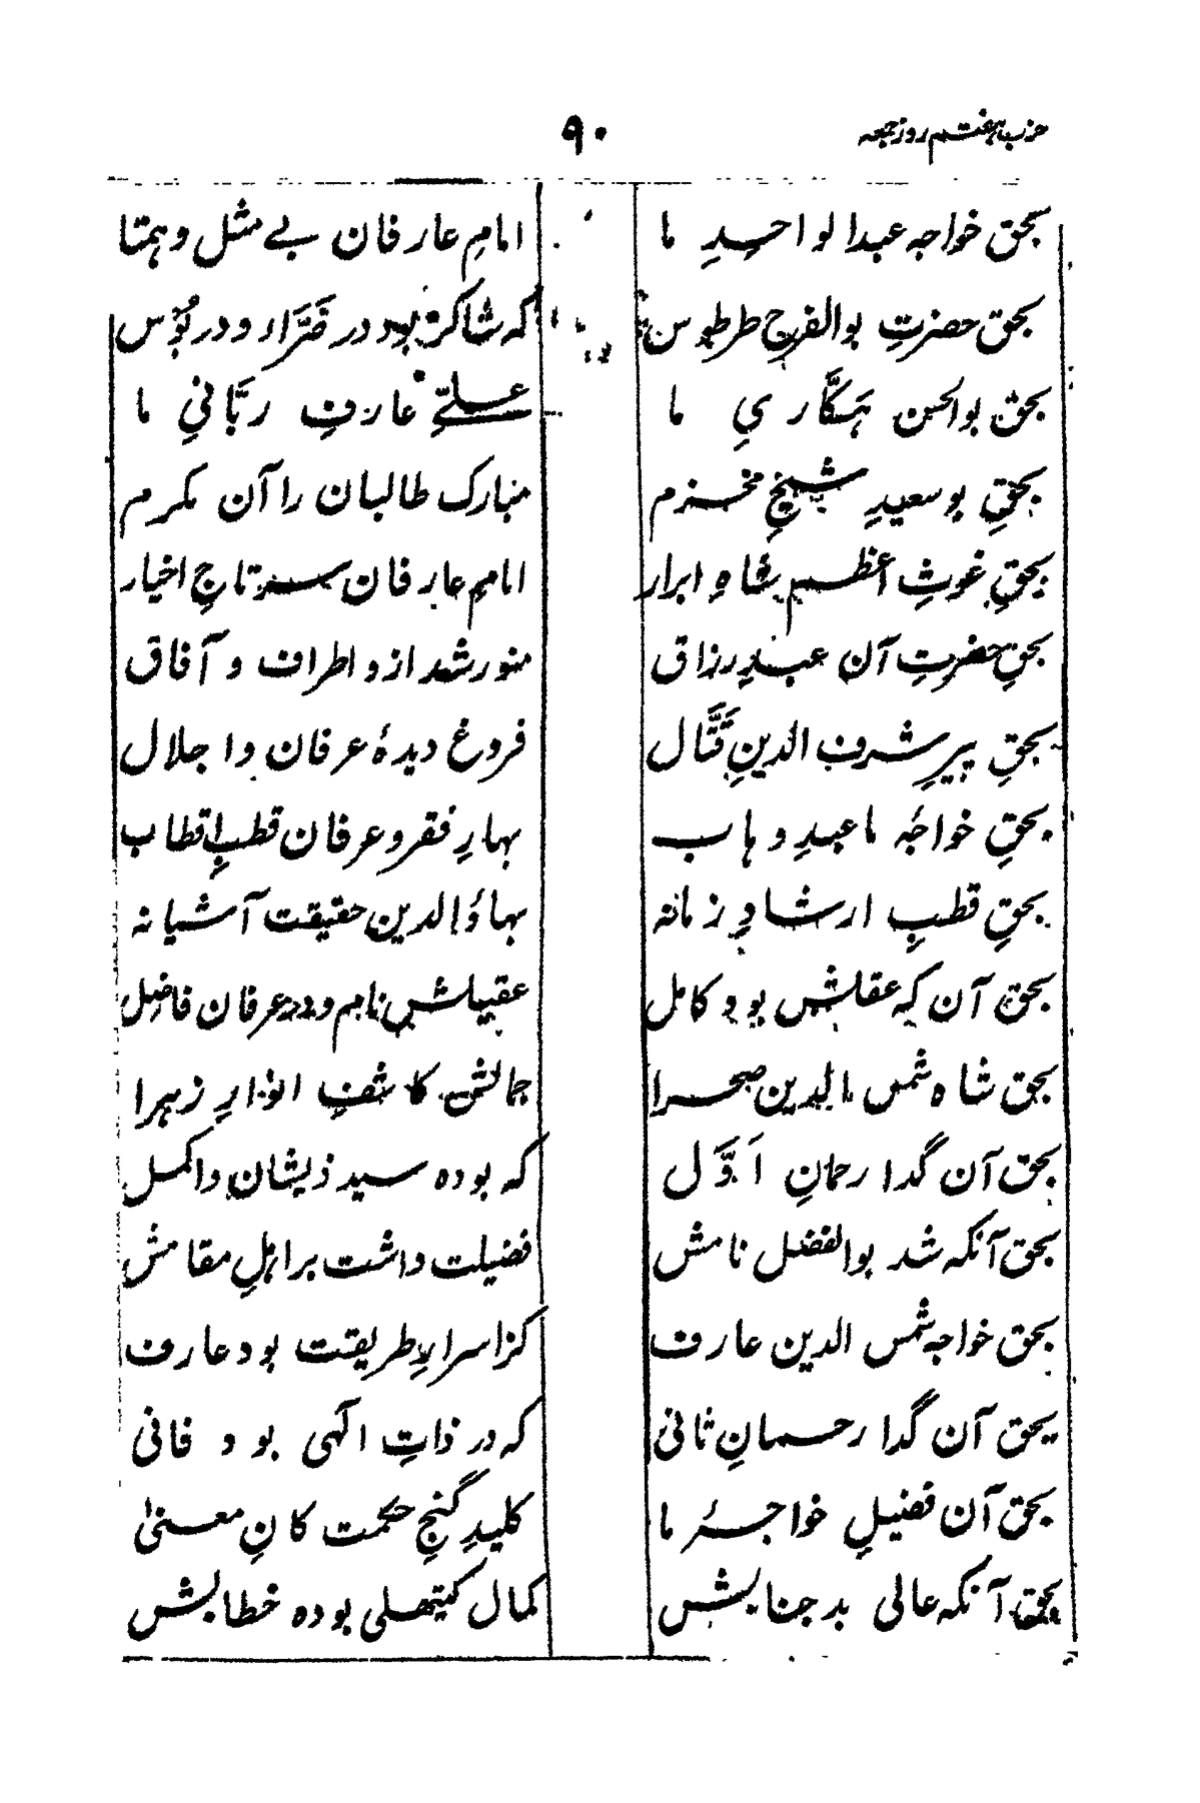 حزب ہفتم روز جمعہ ۹۰
بحق خواجہ عبدالواحدِ ما امامِ عارفان بے مثل و ہمتا
بحق حضرتِ بوالفرح طرطوس کہ شاکر بود در ضَرَّاء و در بُؤس
بحق بوالحسن ہَکَّاریِ ما علیِّ عارفِ ربّانیِ ما
بحقِ بو سعیدِ شیخِ مخزم مبارک طالبان را آن مکرم
بحقِ غوثِ اعظم شاہِ ابرار امامِ عارفان سر تاجِ اخیار
بحقِ حضرتِ آن عبدِ رزاق منور شد ازو اطراف و آفاق
بحقِ پیرِ شرف الدینِ قَتَّال فروغ دیدۂ عرفان و اجلال
بحقِ خواجۂ ما عبدِ وہاب بہارِ فقر و عرفان قطبِ اقطاب
بحقِ قطبِ ارشادِ زمانہ بہاؤالدین حقیقت آشیانہ
بحق آن کہ عقلش بود کامل عقیلش نام و در عرفان فاضل
بحق شاہ شمس الدین صحرا جمالش کاشفِ انوارِ زہرا
بحق آن گدا رحمانِ اَوَّل کہ بودہ سید ذیشان و اکمل
بحق آنکہ شد بوالفضل نامش فضیلت داشت بر اہلِ مقامش
بحق خواجہ شمس الدین عارف کز اسرارِ طریقت بود عارف
بحق آن گدا رحمانِ ثانی کہ در ذاتِ الٰہی بود فانی
بحق آن فضیلِ خواجۂ ما کلیدِ گنجِ حکمت کانِ معنیٰ
بحق آنکہ عالی بد جنابش کمال کیتھلی بودہ خطابش